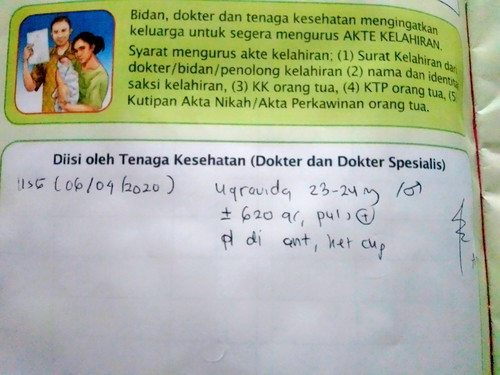 Bidan, dokter dan tenaga kesehatan mengingatkan
keluarga untuk segera mengurus AKTE KELAHIRAN.
Syarat mengurus akte kelahiran; (1) Surat Kelahiran dari
dokter/bidan/penolong kelahiran (2) nama dan identitas
saksi kelahiran, (3) KK orang tua, (4) KTP orang tua, (5)
Kutipan Akta Nikah/Akta Perkawinan orang tua.
Diisi oleh Tenaga Kesehatan (Dokter dan Dokter Spesialis)
USG (06/04/2020)
gravida 23-24 m / ♂
± 620 gr, puls ⊕
di ant, ket cup